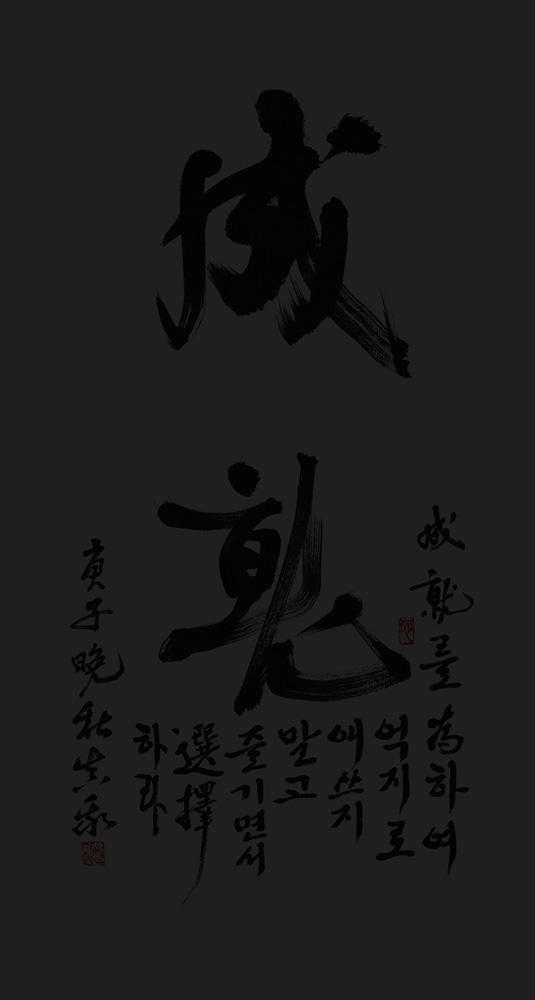 成就
成就를
為하여
억지로
애쓰지
말고
즐기면서
選擇
하라
庚子晩秋